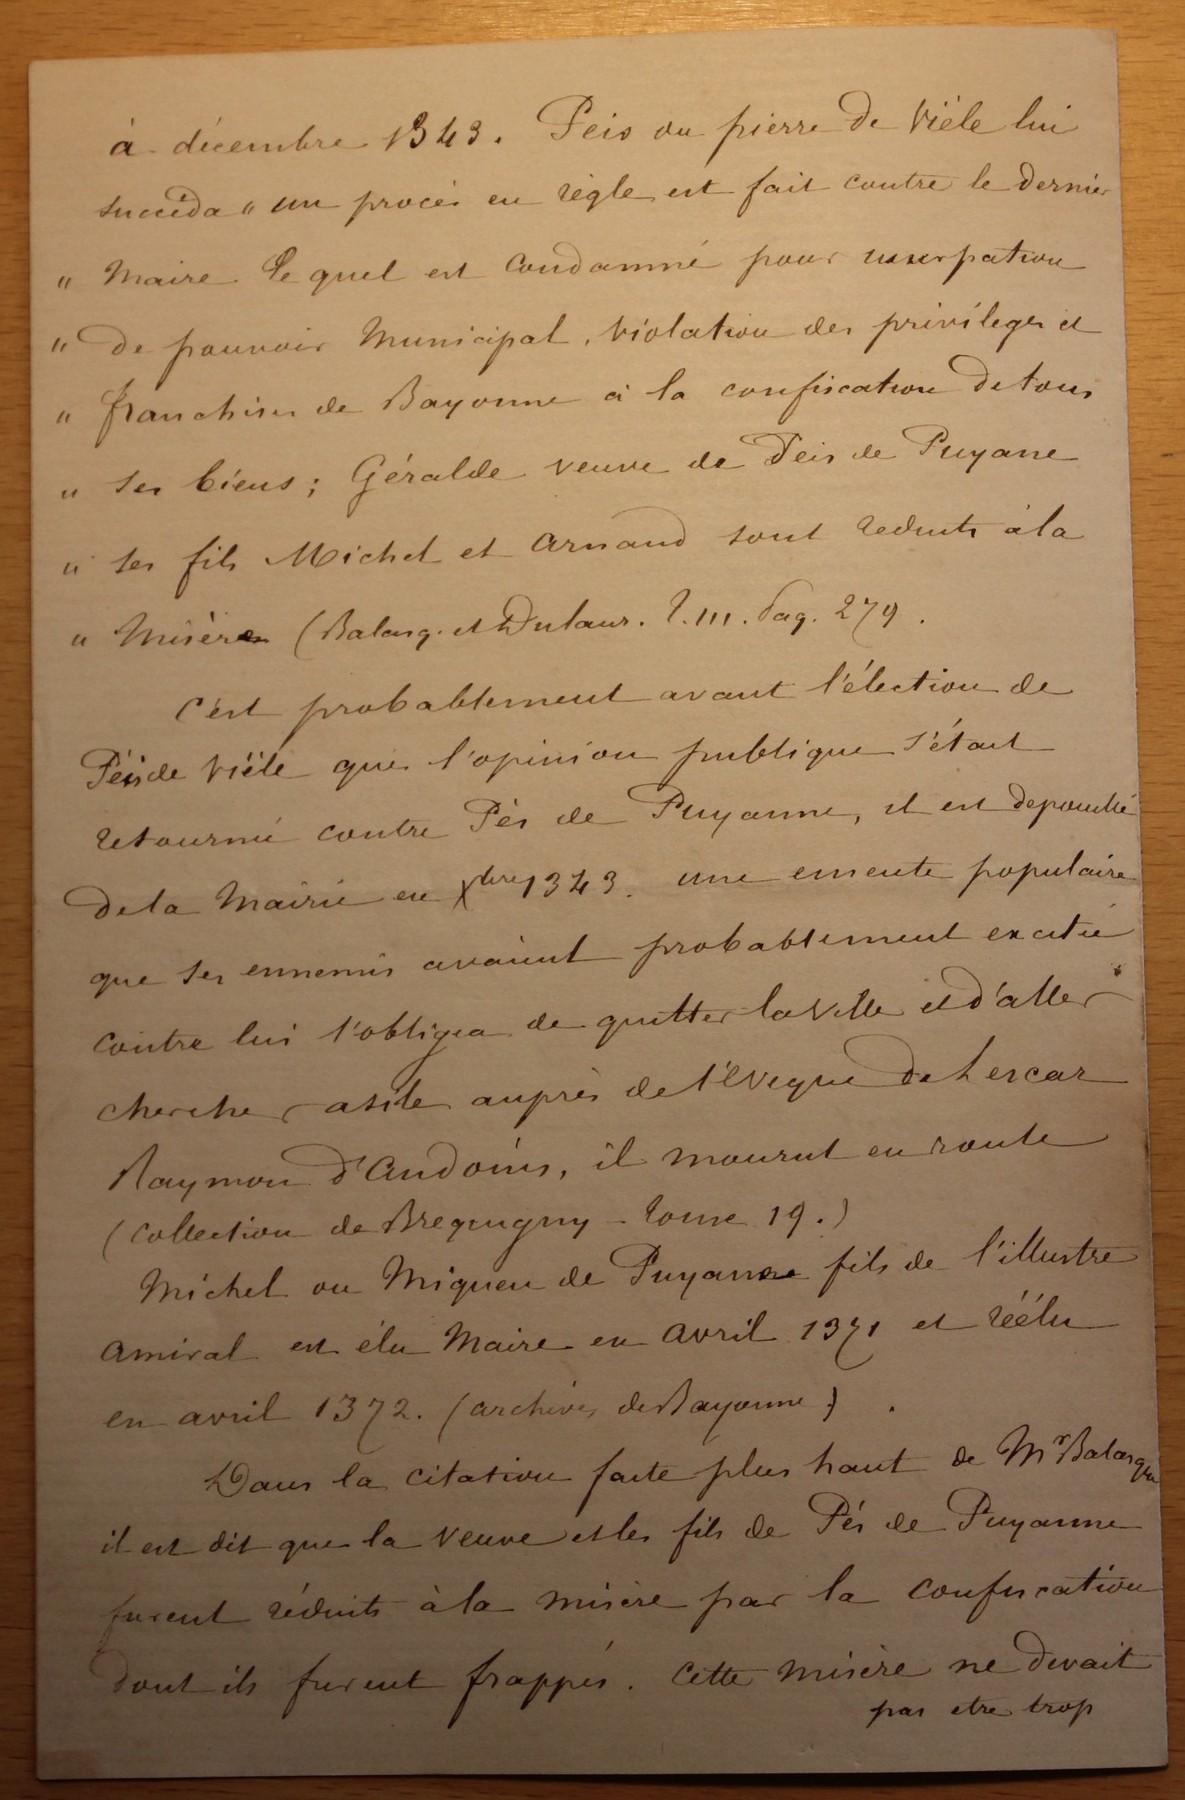 à décembre 1343. Peis ou pierre de Viéle lui
succéda " un procès en règle est fait contre le dernier
" Maire lequel est condamné pour usurpation
" de pouvoir Municipal, violation des privileges et
" franchises de Bayonne à la confiscation de tous
" ses biens ; Géralde veuve de Peis de Puyane
" ses fils Michel et Arnaud sont reduits à la
" Misère (Balasq. et Dulaur. T. III. Pag. 279.
C'est probablement avant l'élection de
Péis de Viéle que l'opinion publique s'était
retourné contre Pés de Puyanne, il est depouillé
de la Mairie en Xbre 1343. une emeute populaire
que ses ennemis avaient probablement excitée
contre lui l'obligea de quitter la ville et d'aller
chercher asile auprès de l'Eveque de Lescar
Raymon d'Andoins, il mourut en route
(Collection de Brequigny - Tome 19.)
Michel ou Miqueu de Puyanne fils de l'illustre
amiral est élu Maire en avril 1371 et réélu
en avril 1372. (archives de Bayonne).
Dans la citation faite plus haut de Mr Balasque
il est dit que la veuve et les fils de Pés de Puyanne
furent réduits à la misère par la confiscation
dont ils furent frappés. Cette misère ne devait
pas etre trop